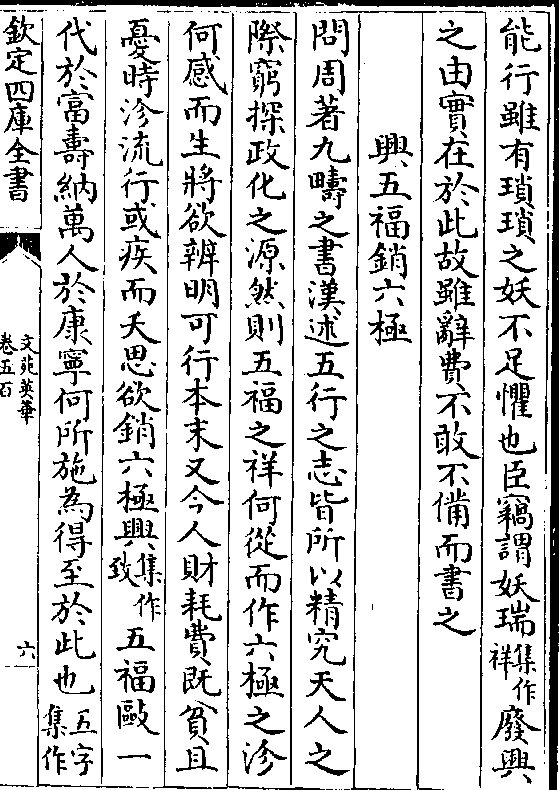 能行雖有瑣瑣之妖不足懼也臣竊謂妖瑞集作祥廢興
之由實在於此故雖辭費不敢不備而書之
興五福銷六極
問周著九疇之書漢述五行之志皆所以精究天人之
際窮探政化之源然則五福之祥何從而作六極之沴
何感而生將欲辨明可行本末又今人財耗費既貧且
憂時沴流行或疾而夭思欲銷六極興集作致五福毆一
代於富壽納萬人於康寧何所施為得至於此也五字集作
欽定四庫全書
文苑英華
卷五百
六